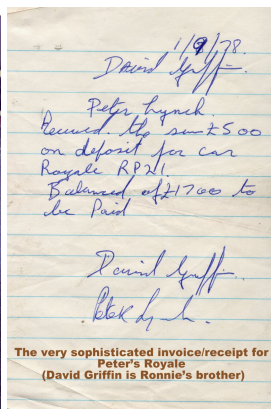 1/9/78.
David Griffin.
Peter Lynch.
Received the sum £500
on deposit for car
Royale RP21.
Balanced of £1700 to
be Paid
David Griffin.
Peter Lynch.
The very sophisticated invoice/receipt for
Peter's Royale
(David Griffin is Ronnie's brother)